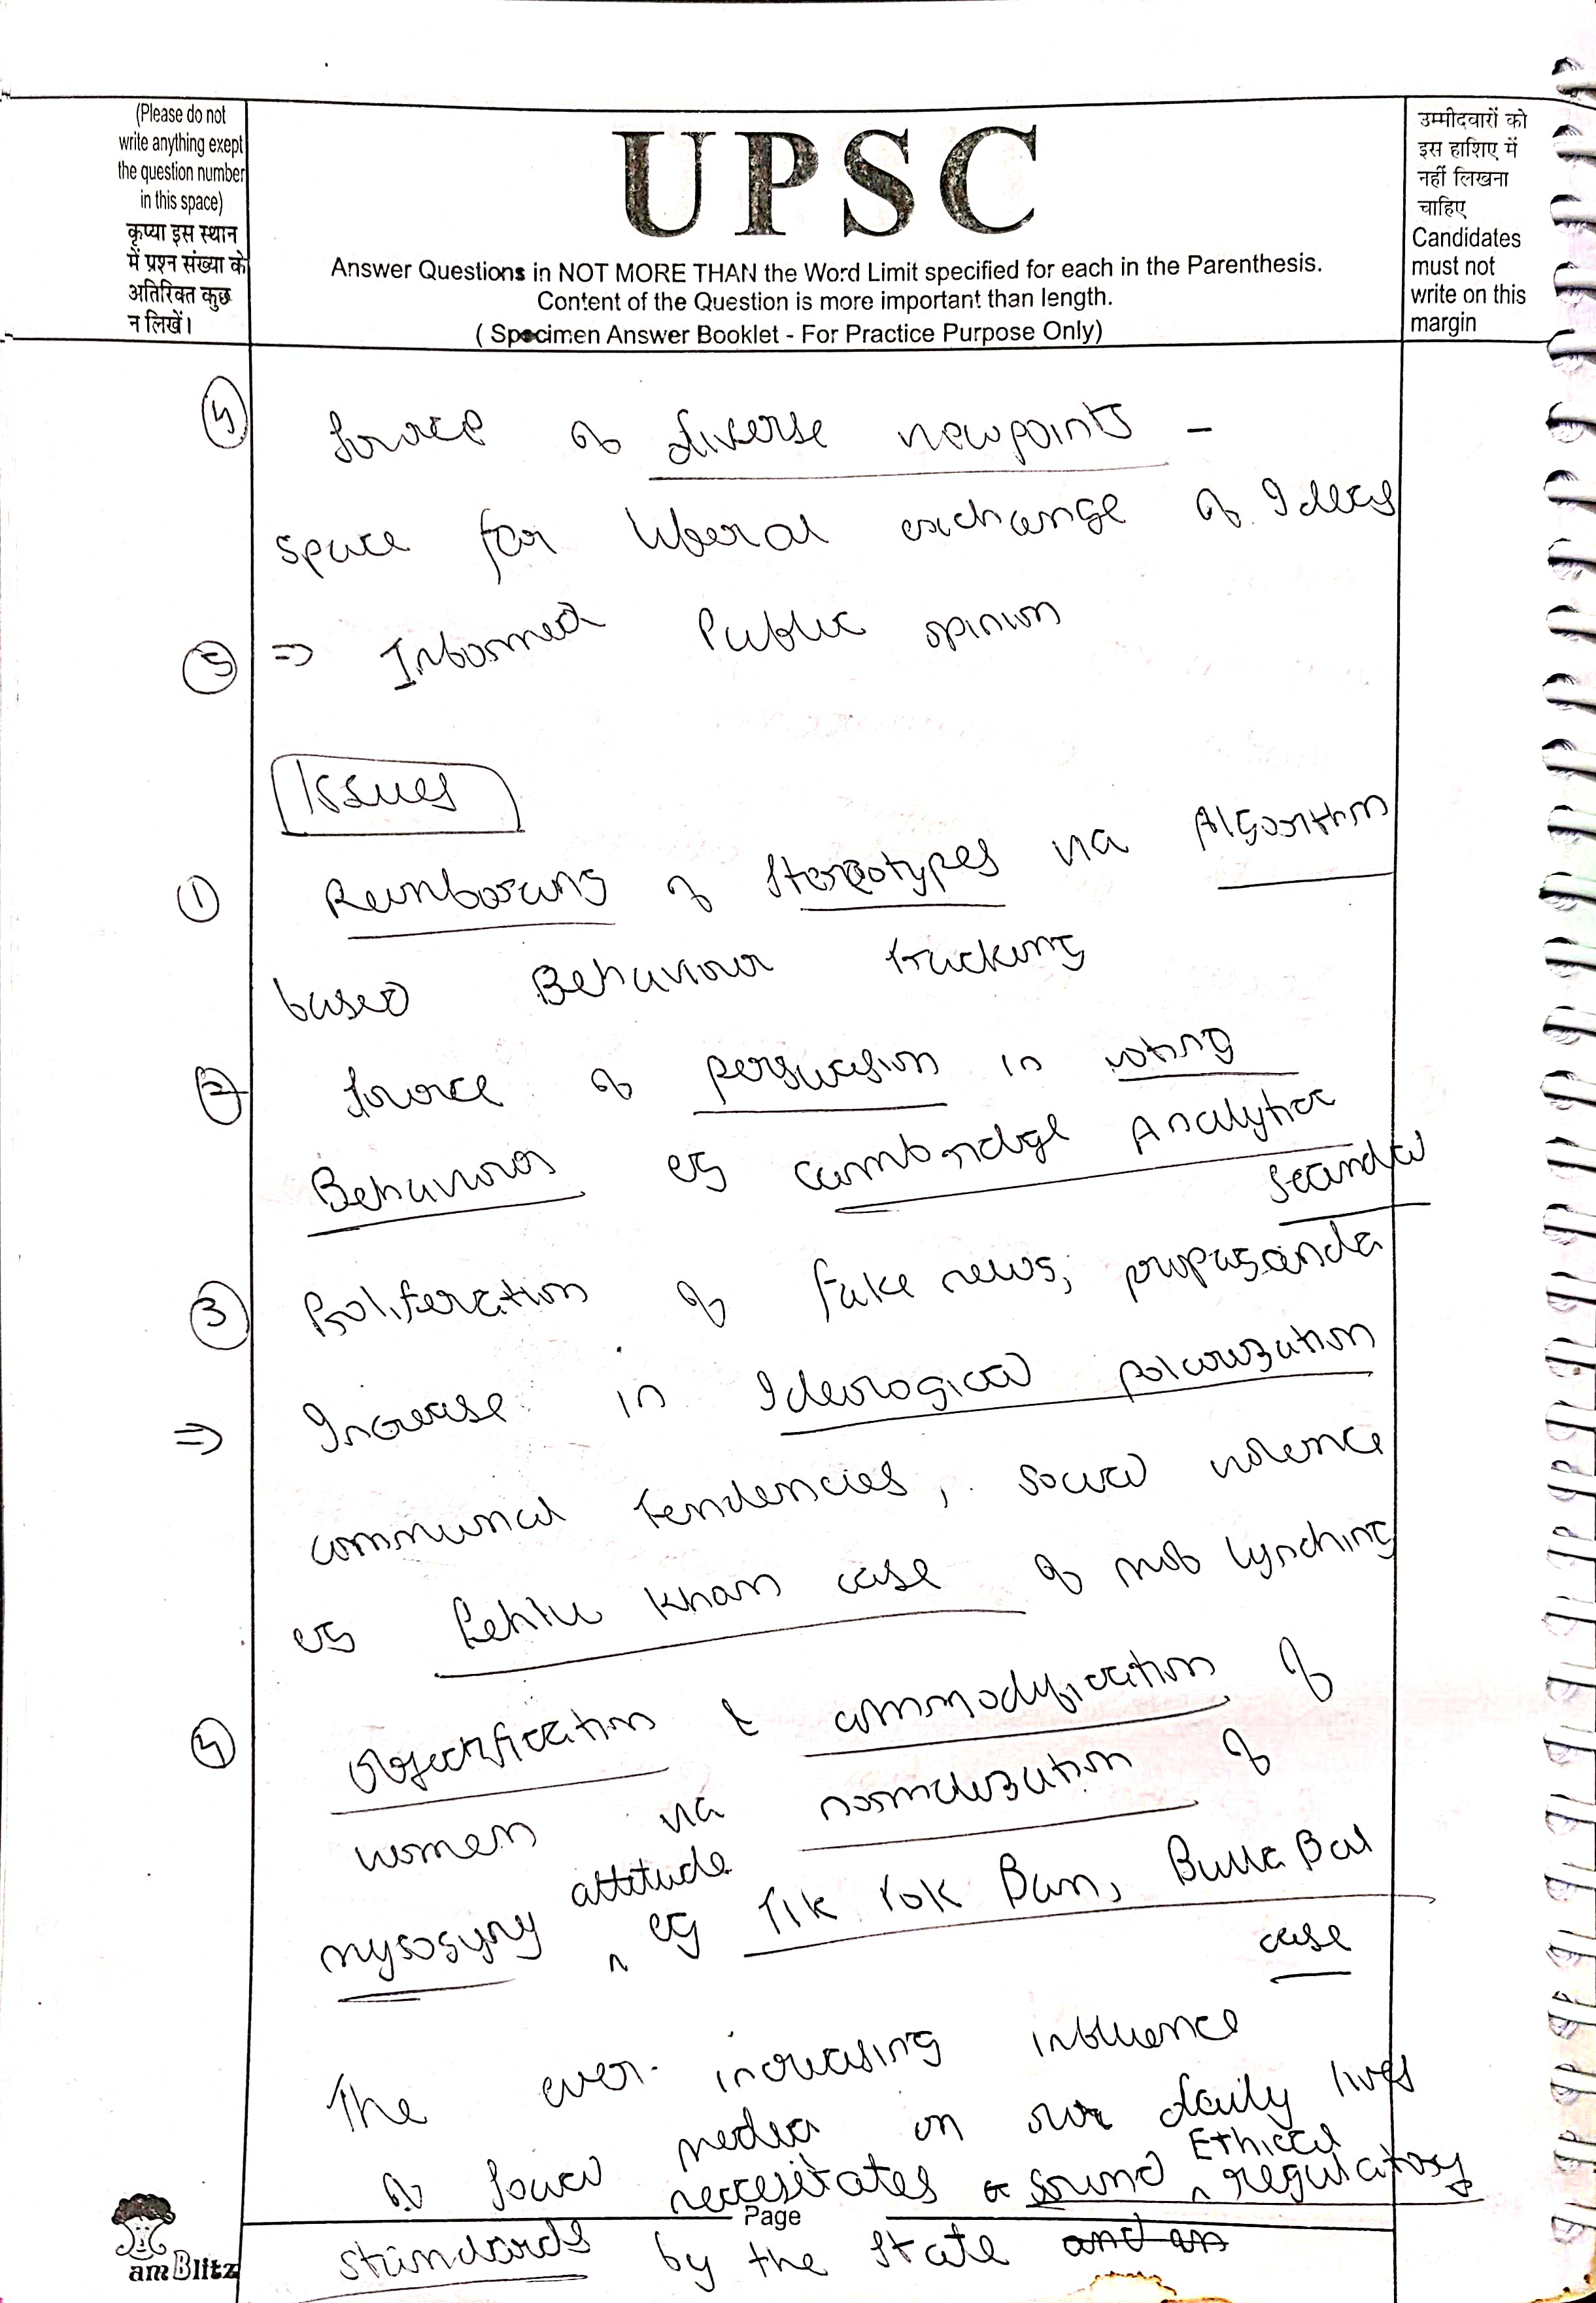 (Please do not
write anything exept
the question number
in this space)
कृप्या इस स्थान
में प्रश्न संख्या के
अतिरिक्त कुछ
न लिखें।
UPSC
Answer Questions in NOT MORE THAN the Word Limit specified for each in the Parenthesis.
Content of the Question is more important than length.
( Specimen Answer Booklet - For Practice Purpose Only)
उम्मीदवारों को
इस हाशिए में
नहीं लिखना
चाहिए
Candidates
must not
write on this
margin
4 Source of diverse viewpoints -
space for liberal exchange of Ideas
5 => Informed Public opinion
Issues
1 Reinforcing of Stereotypes via Algorithm
based Behaviour tracking
2 Source of persuasion in voting
Behaviour eg Cambridge Analytica
Scandal
3 Proliferation of fake news, propaganda
=> Increase in Ideological polarization
communal tendencies, social violence
eg Pehlu Khan case of mob lynching
4 Objectification & commodification of
women via normalization of
mysogyny attitude eg Tik Tok Ban, Bulla Bai
case
The ever-increasing influence
of social media on our daily lives
necessitates a sound Ethical regulatory
standards by the State and an
Page
amBlitz